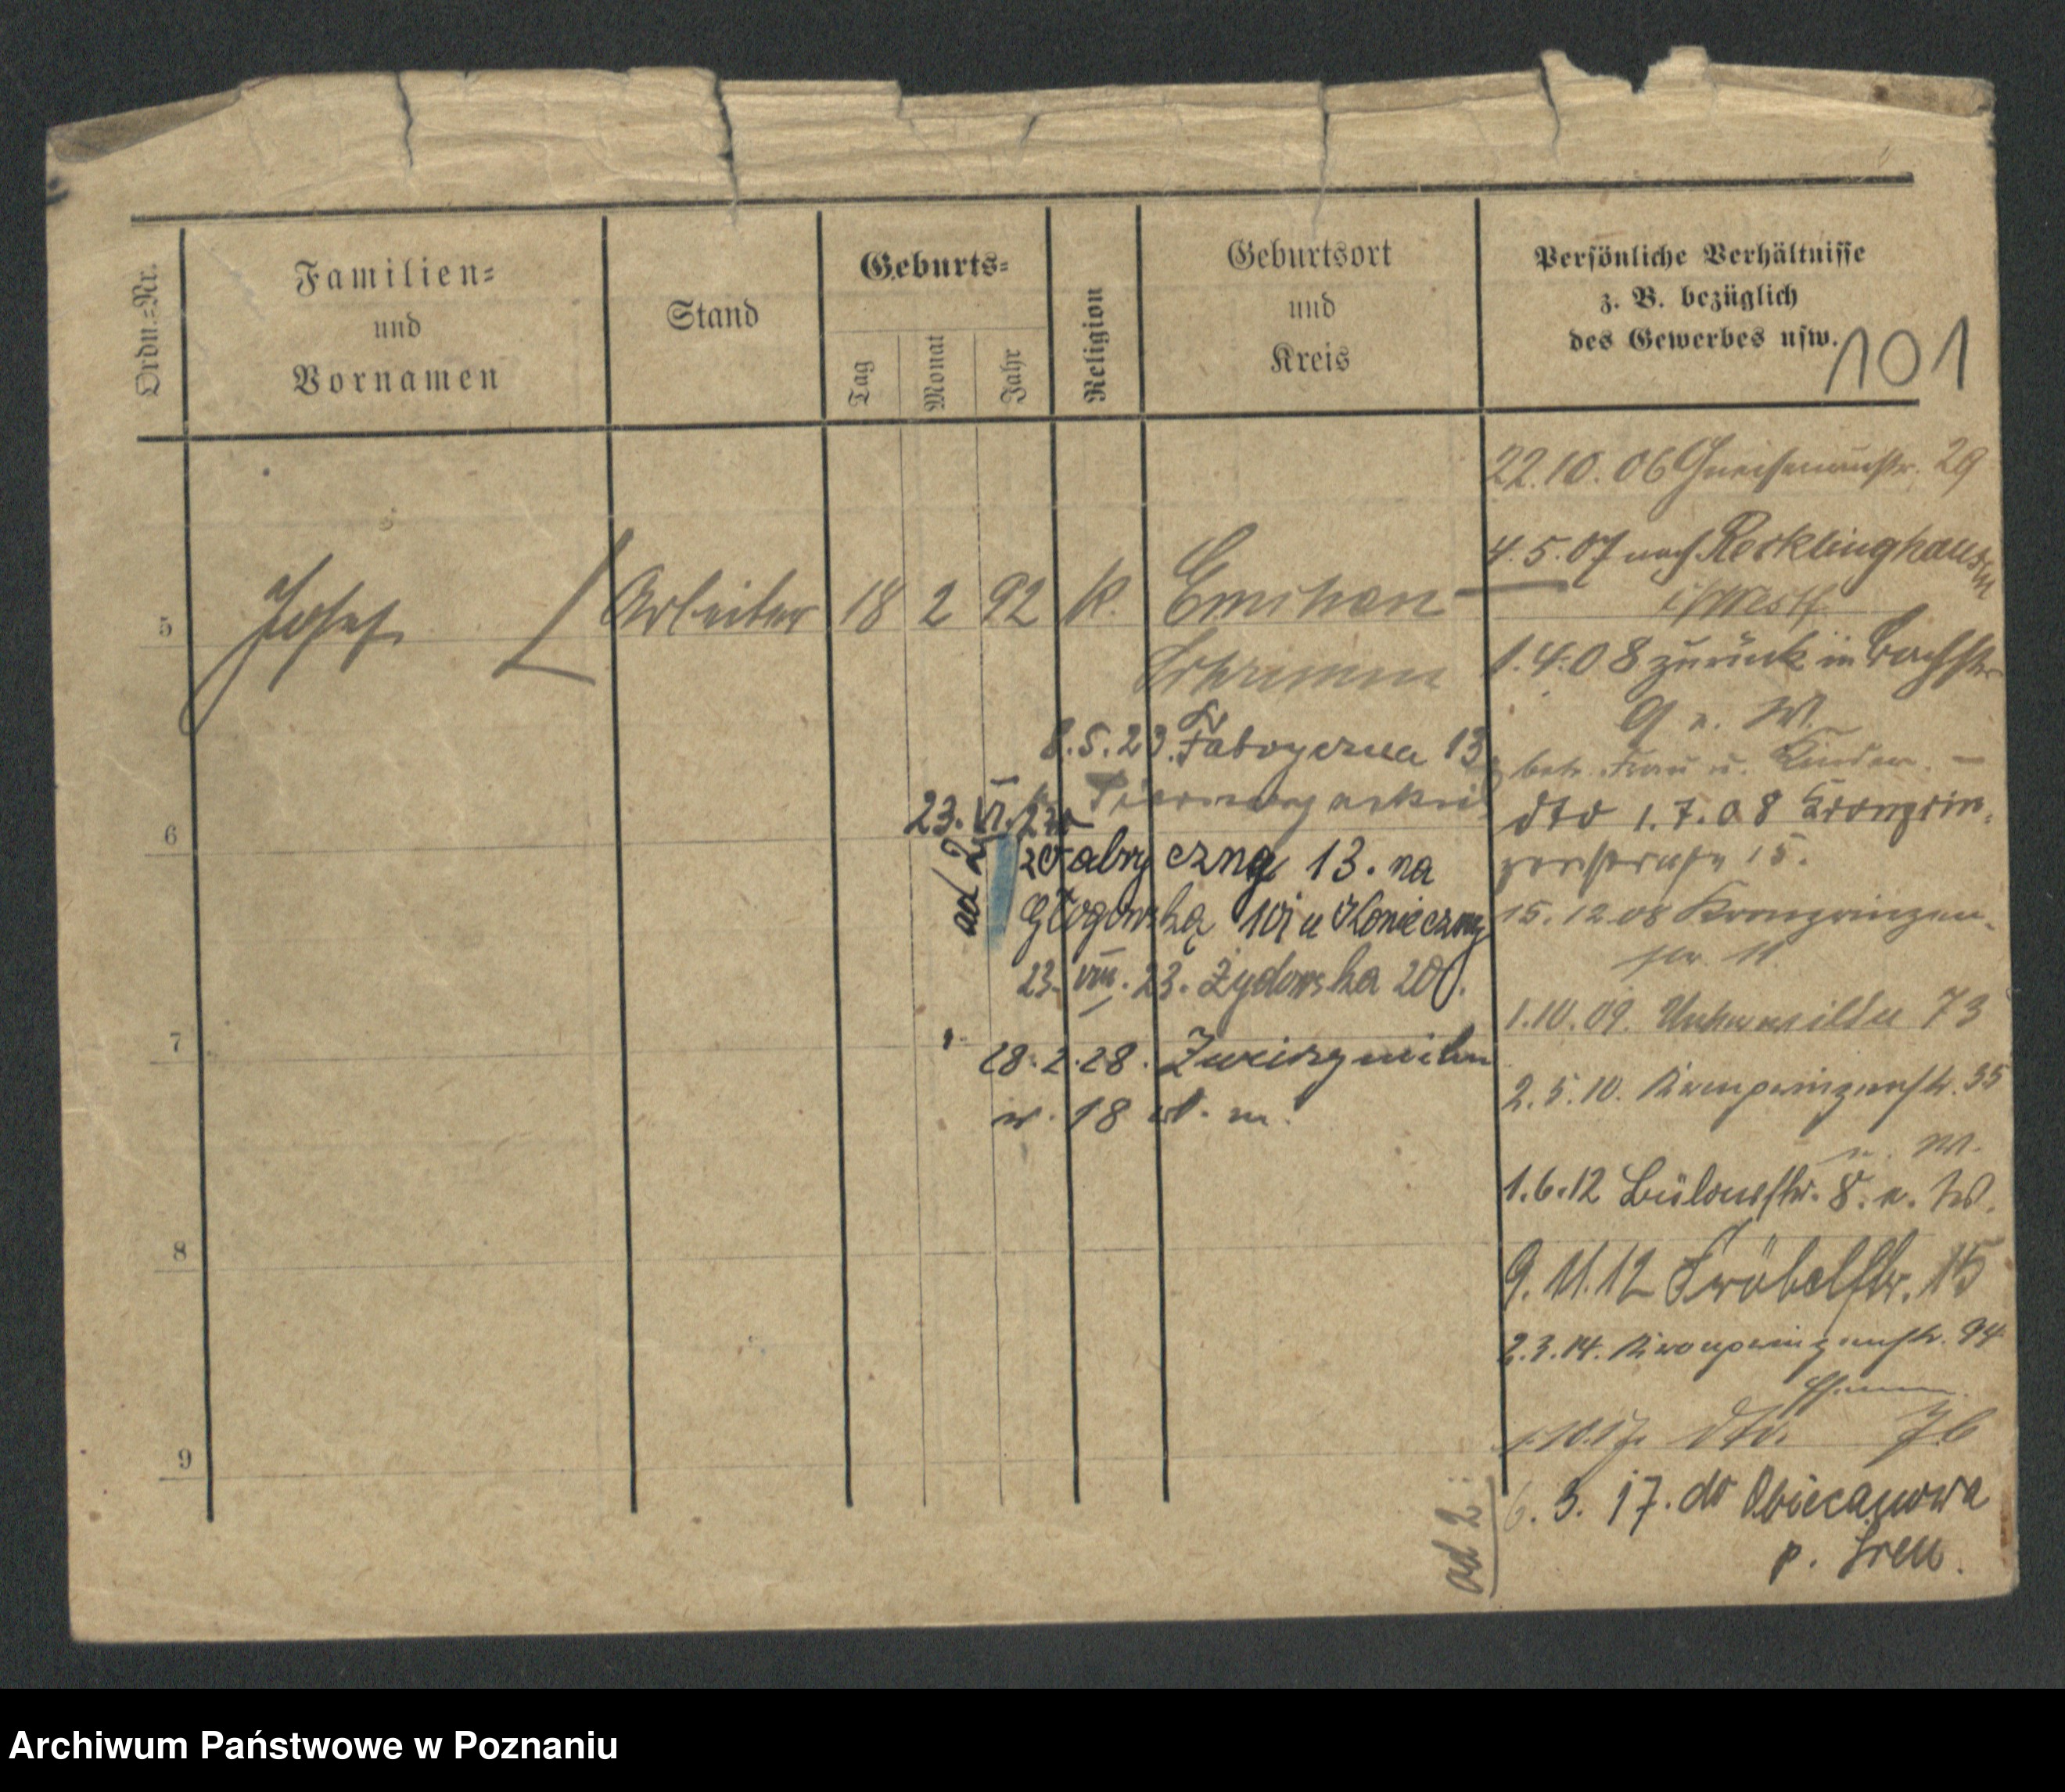 Ordn.-Nr.
Familien-
und
Vornamen
Stand
Geburts-
Tag
Monat
Jahr
Religion
Geburtsort
und
Kreis
Persönliche Verhältnisse
z. B. bezüglich
des Gewerbes usw.
101
22.10.06 Gneisenaustr. 29
4.5.07 nach Recklinghausen
i/Westf.
1.4.08 zurück in Bachstr
9 n. W.
5
Josef
Arbeiter
18
2
92
k.
Emchen
Schrimm
8.5.23. Fabryczna 13
betr. Frau u. Kinder. —
23. VI. 23
dto 1.7.08 Kronprin-
zenstrasse 15.
6
ad 2
z Fabryczna 13. na
Głogowską 101 u Konieczny
15.12.08 Kronprinzen-
str. 11.
23. VIII. 23. Żydowska 20.
1.10.09. Unterwilda 73
7
28.2.28. Zwierzyniecka
w. 18 m.
2.5.10. Kronprinzenstr. 35
n. W.
1.6.12 Bülowstr. 8. n. W.
8
9.11.12 Fröbelstr. 15
2.3.14. Kronprinzenstr. 94
dto. 76
9
ad 2:
6. 3. 17. do Obiecanowa
p. Srem.
Archiwum Państwowe w Poznaniu